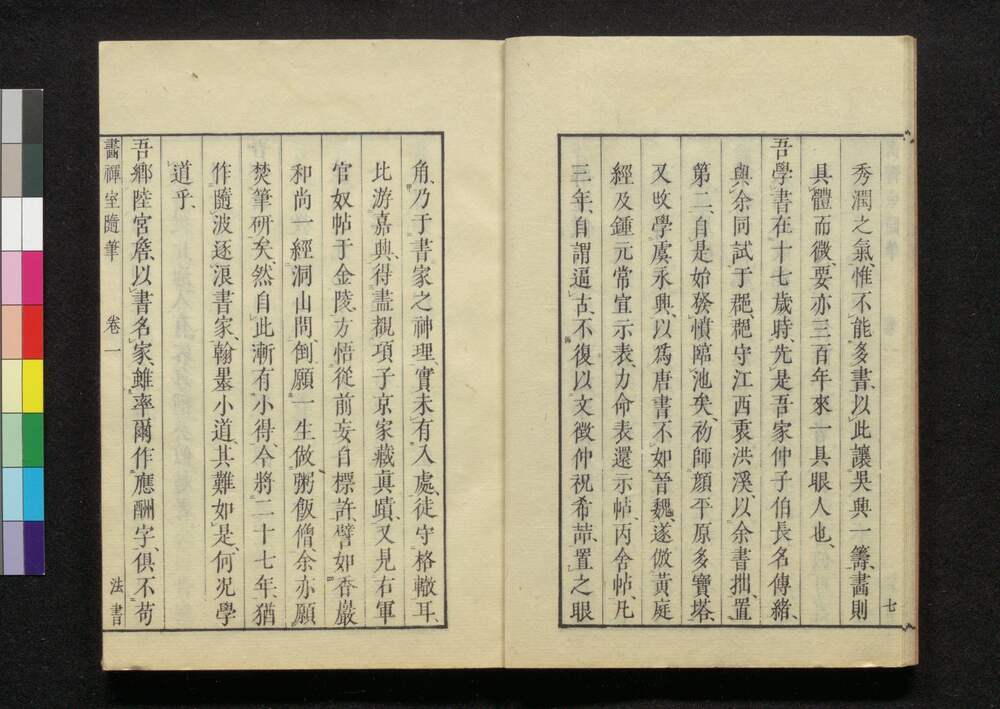 秀潤之氣、惟不能多書、以此讓吳興一籌、畵則
具體而微、要亦三百年來一具眼人也、
吾學書在十七歲時、先是吾家仲子伯長名傳緒、
與余同試于郡、郡守江西衷洪溪、以余書拙、置
第二、自是始發憤臨池矣、初師顏平原多寶塔、
又改學虞永興、以爲唐書不如晉魏、遂倣黃庭
經及鍾元常宣示表、力命表還示帖、丙舍帖、凡
三年、自謂逼古、不復以文徵仲祝希喆、置之眼
七
角、乃于書家之神理、實未有入處、徒守格轍耳、
比游嘉興、得盡覩項子京家藏眞蹟、又見右軍
官奴帖于金陵、方悟從前妄自標許、譬如香巖
和尚一經洞山問、倒願一生做粥飯僧、余亦願
焚筆研矣、然自此漸有小得、今將二十七年、猶
作隨波逐浪書家、翰墨小道、其難如是、何況學
道乎、
吾鄉陸宮詹、以書名家、雖率爾作應酬字、俱不苟
畵禪室隨筆 卷一 法書